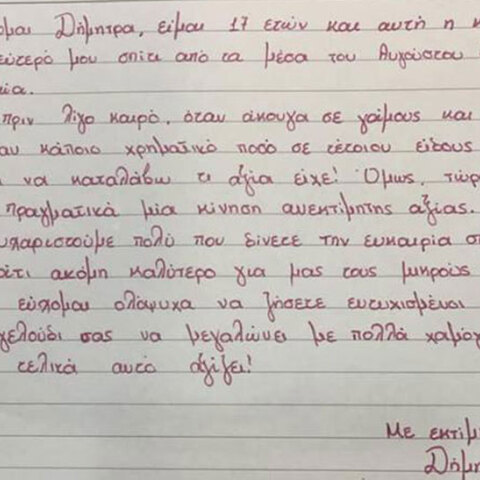 ομαι Δήμητρα, είμαι 17 ετών και αυτή η κ
εύτερό μου σπίτι από τα μέσα του Αυγούστου
ία.
πριν λίγο καιρό, όταν άκουγα σε γάμους και
αν κάποιο χρηματικό ποσό σε τέτοιου είδους
να καταλάβω τι αξία είχε! Όμως, τώρ
πραγματικά μία κίνηση ανεκτίμητης αξίας.
υχαριστούμε πολύ που δίνετε την ευκαιρία σ
άτι ακόμη καλύτερο για μας τους μικρούς
εύχομαι ολόψυχα να ζήσετε ευτυχισμένοι
γελούδι σας να μεγαλώνει με πολλά χαμόγ
τελικά αυτό αξίζει!
Με εκτίμ
Δήμη